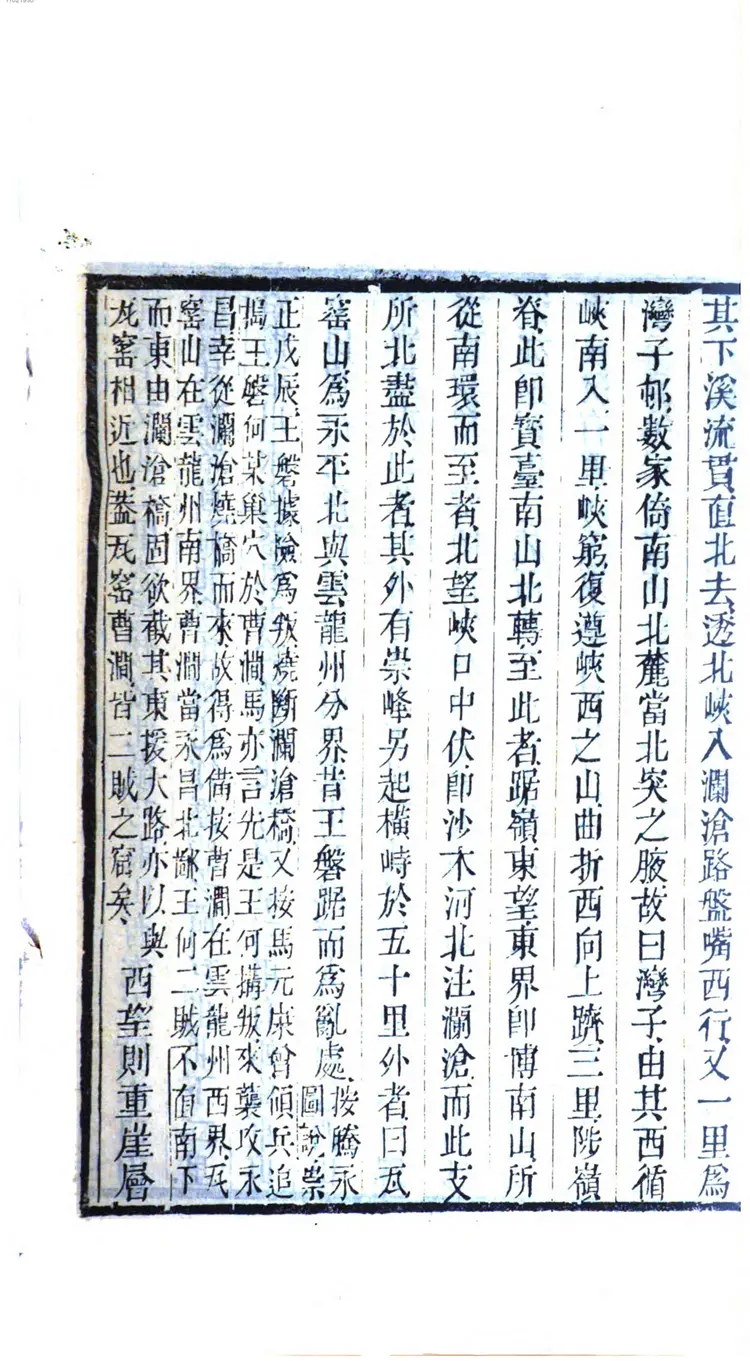 其下溪流貫直北去透北峽入瀾滄路盤嘴西行又一里爲
灣子邨數家倚南山北麓當北突之腋故曰灣子由其西循
峽南入一里峽窮復遵峽西之山曲折西向上躋三里陟嶺
脊此卽寶臺南山北轉至此者踞嶺東望東界卽博南山所
從南環而至者北望峽口中伏卽沙木河北注瀾滄而此支
所北盡於此者其外有崇峰另起橫峙於五十里外者曰瓦
窰山爲永平北與雲龍州分界昔王磐踞而爲亂處
按騰永
圖說崇
正戊辰王磐據險爲叛燒斷瀾滄橋又按馬元康曾傾兵追
搗王磐何某巢穴於曹澗馬亦言先是王何搆叛來襲攻永
昌幸從瀾滄燒橋而來故得爲備按曹澗在雲龍州西界瓦
窰山在雲龍州南界曹澗當永昌北鄙王何二賊不直南下
而東由瀾滄橋固欲截其東援大路亦以與
瓦窰相近也葢瓦窰曹澗皆二賊之窟矣
西望則重崖層